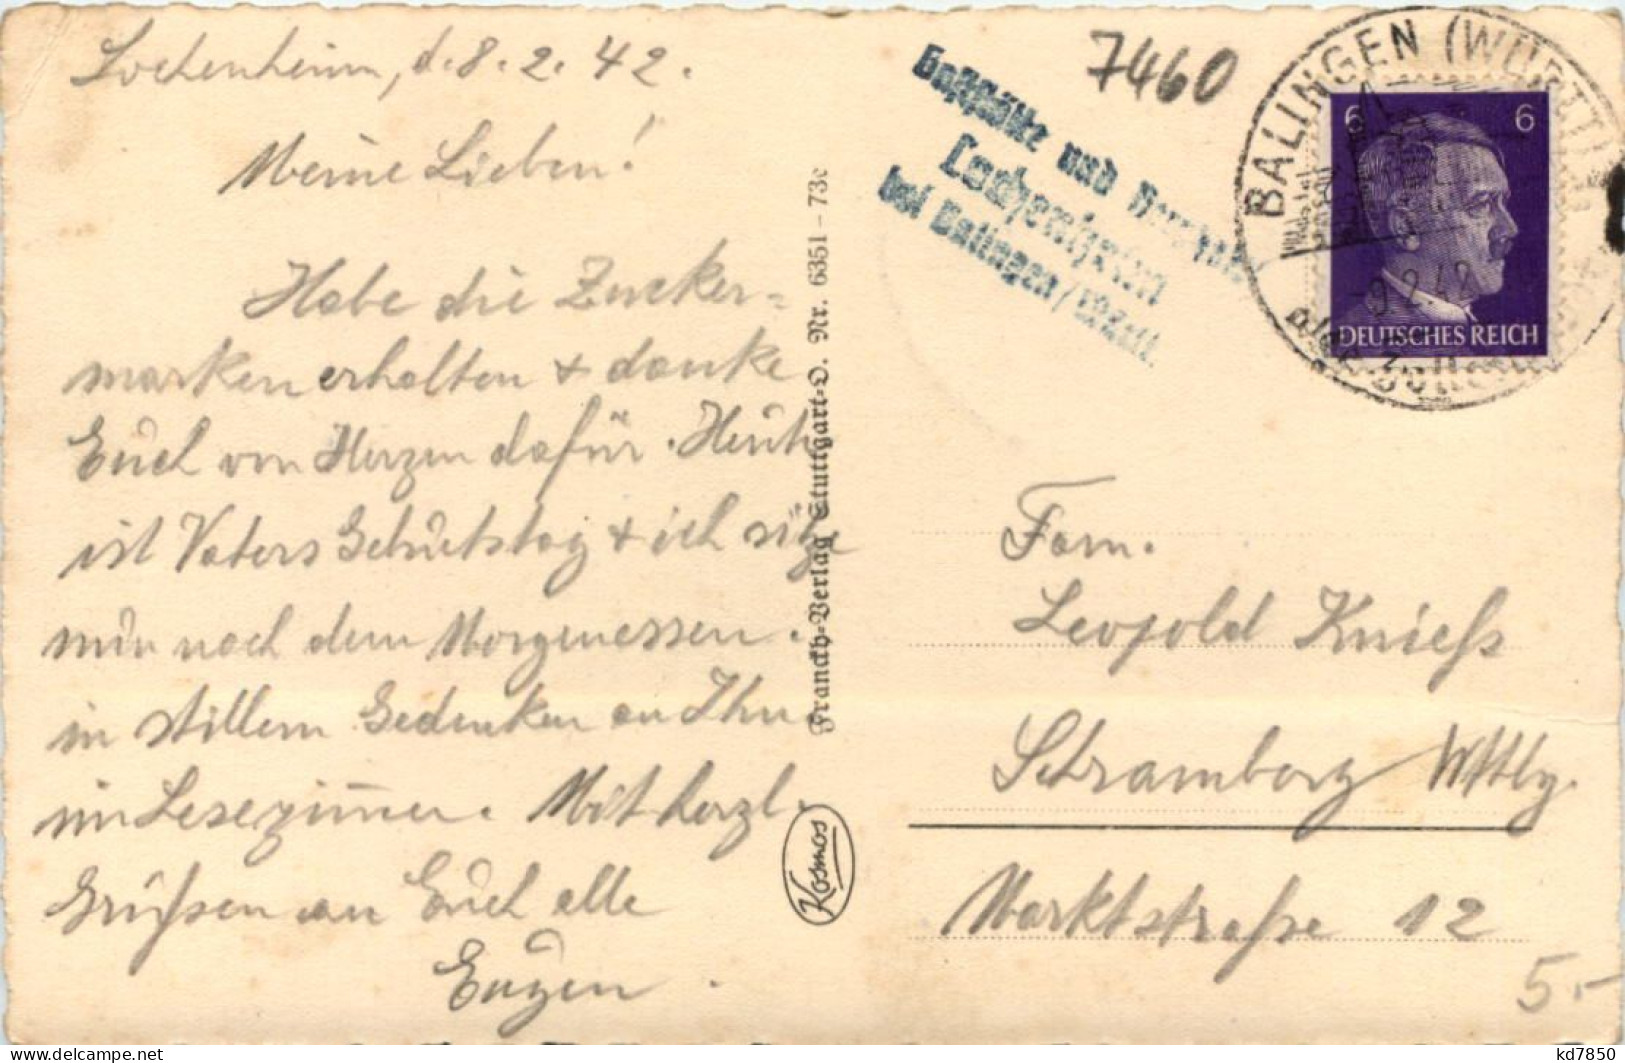 Lochenheim, d. 8. 2. 42.
Meine Lieben!
Habe die Zucker=
marken erhalten + danke
Euch von Herzen dafür. Heute
ist Vaters Geburtstag + ich sitze
nun nach dem Morgenessen
in stillem Gedenken an Ihn
im Lesezimmer. Mit herzl.
Grüßen an Euch alle
Eugen.
Franckh-Verlag Stuttgart-O. Nr. 6351 - 73c
Kosmos
und
Lochenheim
bei Balingen/Württ.
7460
BALINGEN (WÜRTT)
-9.2.42
6 6
DEUTSCHES REICH
Fam.
Leopold Kniess
Schramberg Wttbg.
Marktstraße 12
5.-
www.delcampe.net
kd7850